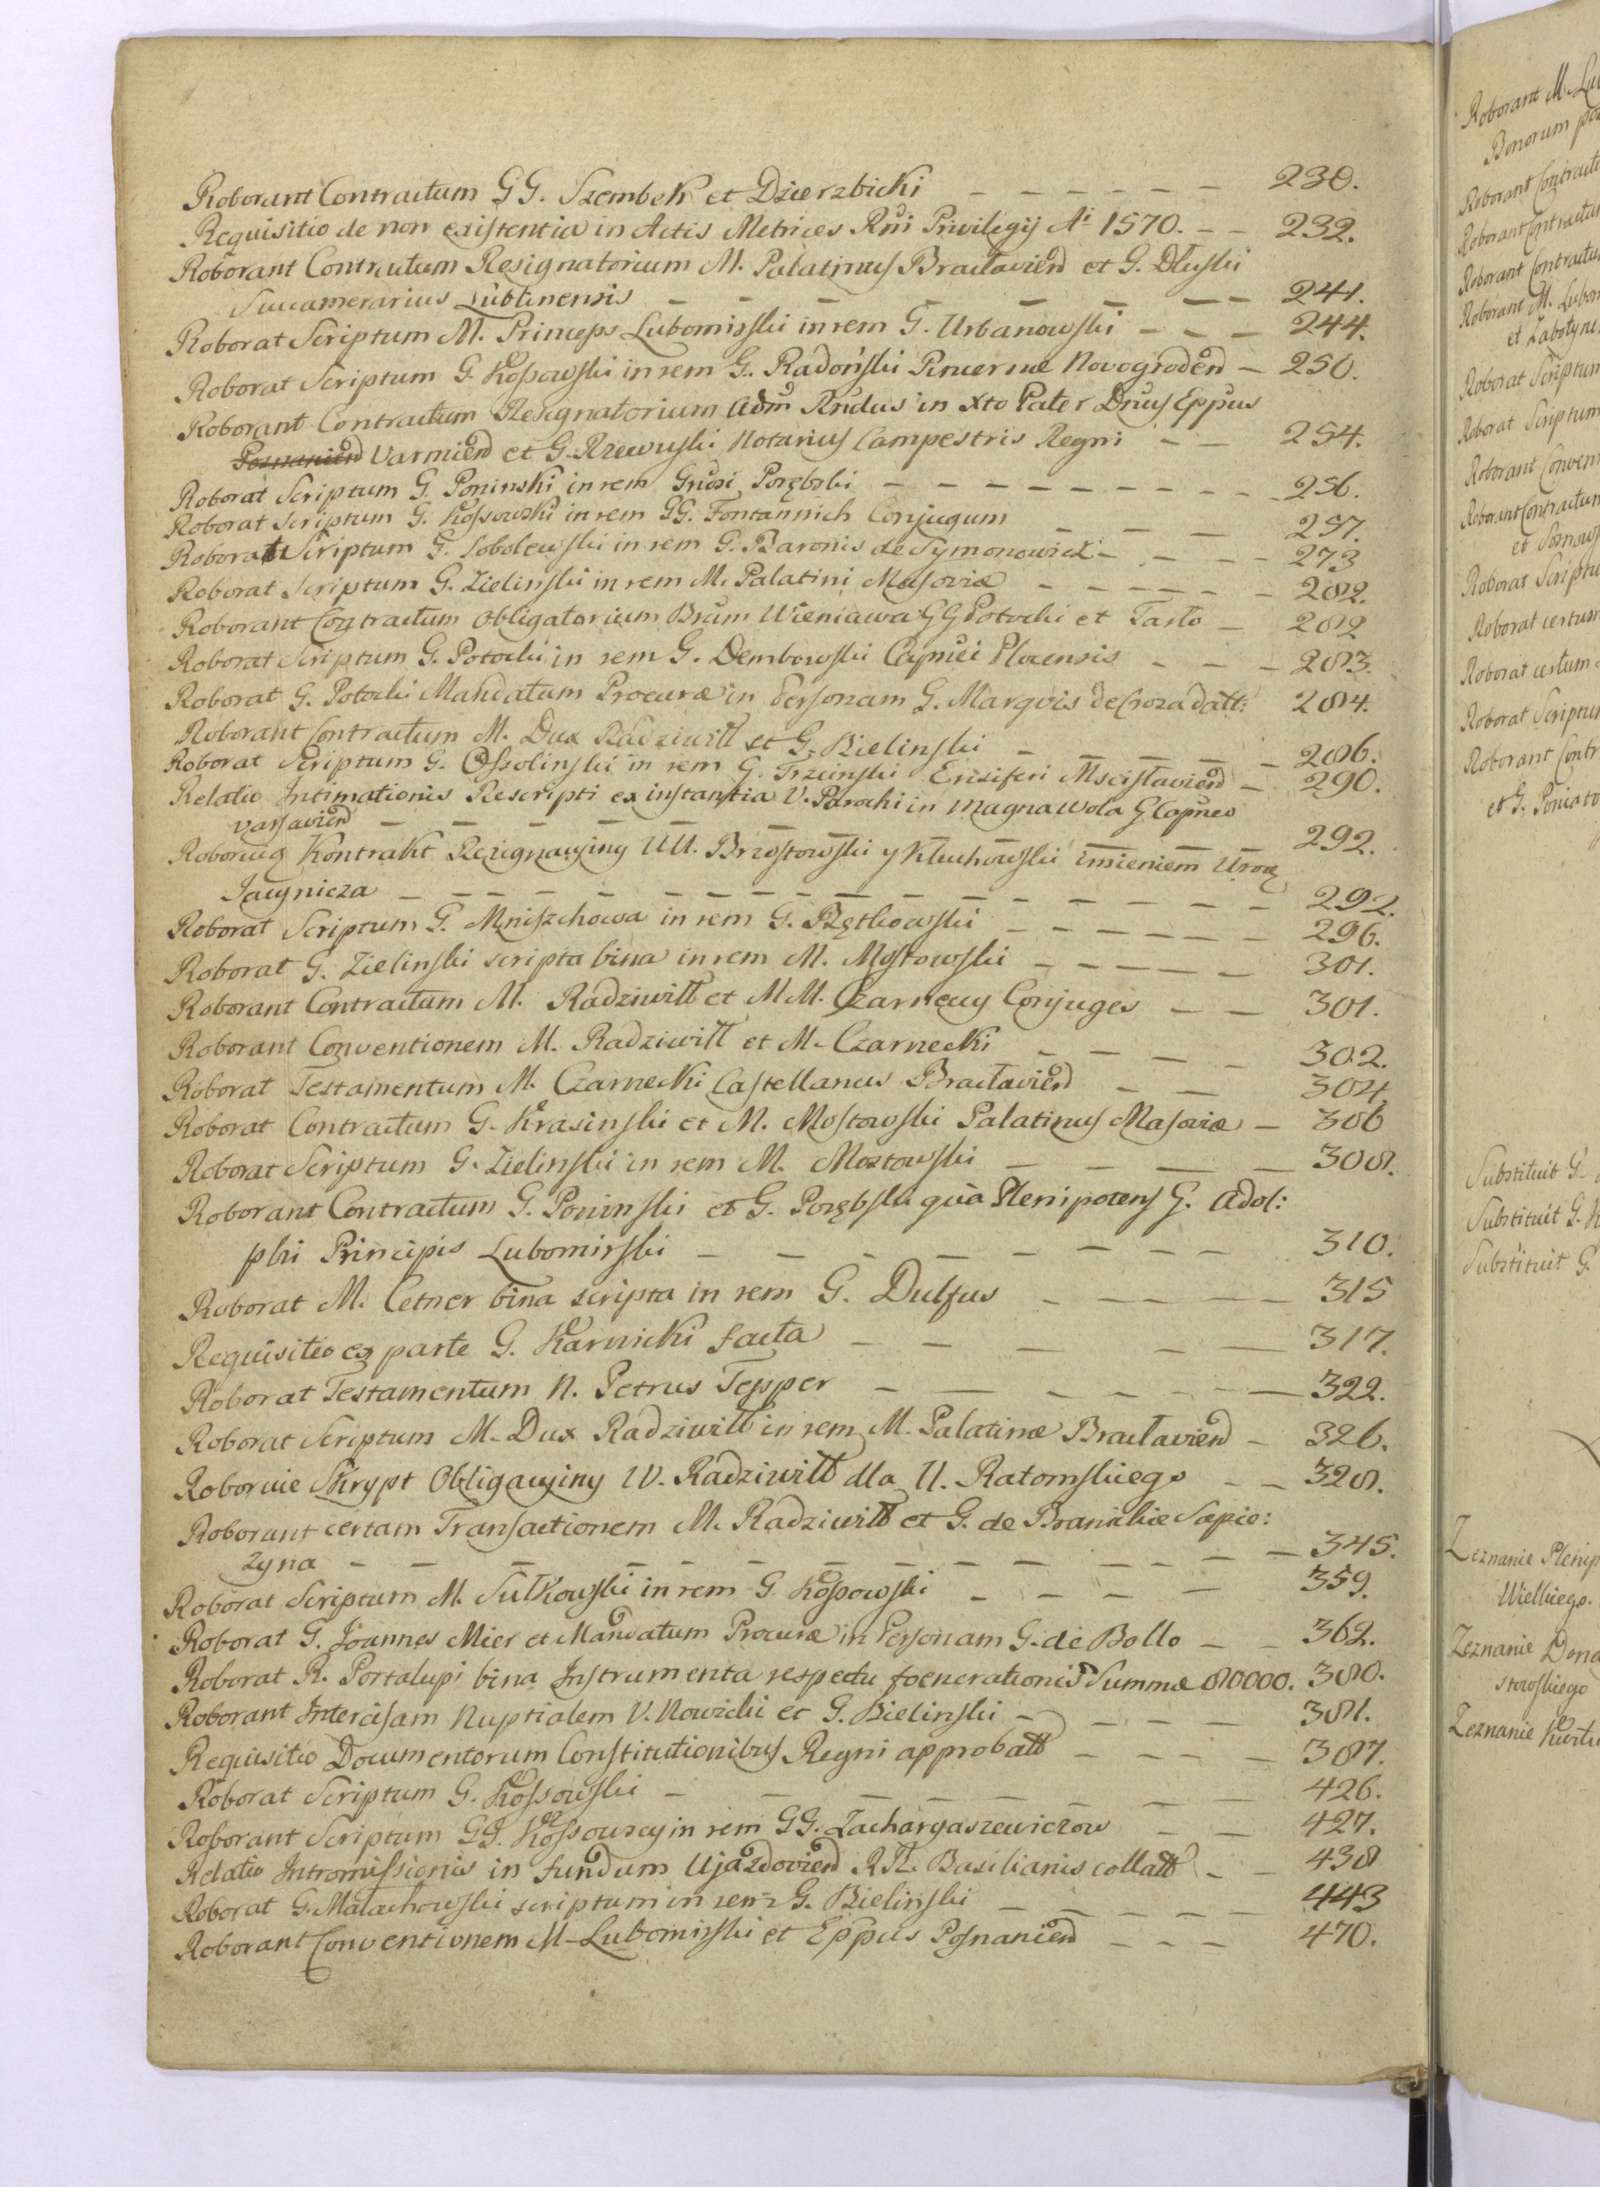 Roborant Contractum GG. Szembek et Dzierzbicki — — — — — — 230.
Requisitio de non existentia in Actis Metrices Rni Privilegij Ai 1570. — — 232.
Roborant Contractum Resignatorium M. Palatinus Bracłaviend et G. Dłuski
Succamerarius Lublinensis — — — — — — — 241.
Roborat Scriptum M. Princeps Lubomirski in rem G. Urbanowski — — — 244.
Roborat Scriptum G. Kossowski in rem G. Radoński Pincernæ Novogrodend — 250.
Roborant Contractum Resignatorium Adm Rndus in Xto Pater Dnus Eppus
Posnaniend Varmiend et G. Rzewuski Notarius Campestris Regni — — 254.
Roborat Scriptum G. Poninski in rem Grosi Porębski — — — — — — — — — 256.
Roborat scriptum G. Kossowski in rem GG. Fontannich Conjugum — — — 257.
Roborat Scriptum G. Sobolewski in rem G. Baronis de Symonowicz — — — — 273
Roborat Scriptum G. Zielinski in rem M. Palatini Masoviæ — — — — — — 282.
Roborant Contractum obligatorium Brum Wieniawa GG Potocki et Tarło — 282
Roborat Scriptum G. Potocki in rem G. Dembowski Capnei Plocensis — — — 283.
Roborat G. Potocki Mandatum Procuræ in Personam G. Marqvis de Croza datt: 284.
Roborant Contractum M. Dux Radziwiłł et G. Bielinski — — — — — 286.
Roborat Scriptum G. Ossolinski in rem G. Trzcinski Ensiferi Mscisłaviend — 290.
Relatio Intimationis Rescripti ex instantia V. Parochi in Magna Wola G Capneo
Varsaviend — — — — — — — — — — — 292.
Roborują Kontrakt Rezignacyiny UU. Brzostowski y Kluchowski imieniem Urodz
Jawnicza — — — — — — — — — — — — — — — 292.
Roborat Scriptum G. Mniszchowa in rem G. Rętkowski — — — — — — 296.
Roborat G. Zielinski scripta bina in rem M. Mostowski — — — — — — 301.
Roborant Contractum M. Radziwiłł et MM. Czarneccy Conjuges — — 301.
Roborant Conventionem M. Radziwiłł et M. Czarnecki — — — — 302.
Roborat Testamentum M. Czarnecki Castellanus Bracłaviend — — 304.
Roborat Contractum G. Krasinski et M. Mostowski Palatinus Masoviæ — 306
Roborat Scriptum G. Zielinski in rem M. Mostowski — — — — 308.
Roborant Contractum G. Poninski et G. Porębski qua Plenipotens G. Adol:
phi Principis Lubomirski — — — — — — — — 310.
Roborat M. Cetner bina scripta in rem G. Dulfus — — — — — 315
Requisitio ex parte G. Karnicki facta — — — — — 317.
Roborat Testamentum N. Petrus Tepper — — — — — — 322.
Roborat Scriptum M. Dux Radziwiłł in rem M. Palatinæ Bracłaviend — 326.
Roboruie Skrypt Obligacyiny W. Radziwiłł dla U. Ratomskiego — — 328.
Roborant certam Transactionem M. Radziwiłł et G. de Branickie Sapie:
żyna — — — — — — — — — — — — — — 345.
Roborat Scriptum M. Sułkowski in rem G. Kossowski — — — — 359.
Roborat G. Joannes Mier et Mandatum Procuræ in Personam G. de Bollo — — 362.
Roborat R. Portalupi bina Instrumenta respectu foenerationis Summæ 80000. 380.
Roborant Intercisam Nuptialem V. Nowicki et G. Bielinski — — — — — 381.
Requisitio Documentorum Constitutionibus Regni approbatt — — — — 387.
Roborat Scriptum G. Kossowski — — — — — — — — 426.
Roborant Scriptum GG. Kossowscy in rem GG. Zachargaszewiczow — — 427.
Relatio Intromissionis in fundum Ujazdoviend RR. Basilianis collatt — — 438
Roborat G. Małachowski scriptum in rem G. Bielinski — — — — — — 443
Roborant Conventionem M. Lubomirski et Eppus Posnaniend — — — 470.
Roborant M. Lu
Bonorum po
Roborant Contractu
Roborant Contractum
Roborant Contractu
Roborant M. Lubom
et Zabotyns
Roborat Scriptum
Roborat Scriptum
Roborant Conven
Roborant Contractum
et Sosnow
Roborat Scriptu
Roborat certum
Roborat certum
Roborat Scriptum
Roborant Contr
et G. Poniato
Substituit G.
Substituit G. K
Substituit G.
Zeznanie Plenip
Wielkiego.
Zeznanie Dona
stowskiego
Zeznanie Kwitu